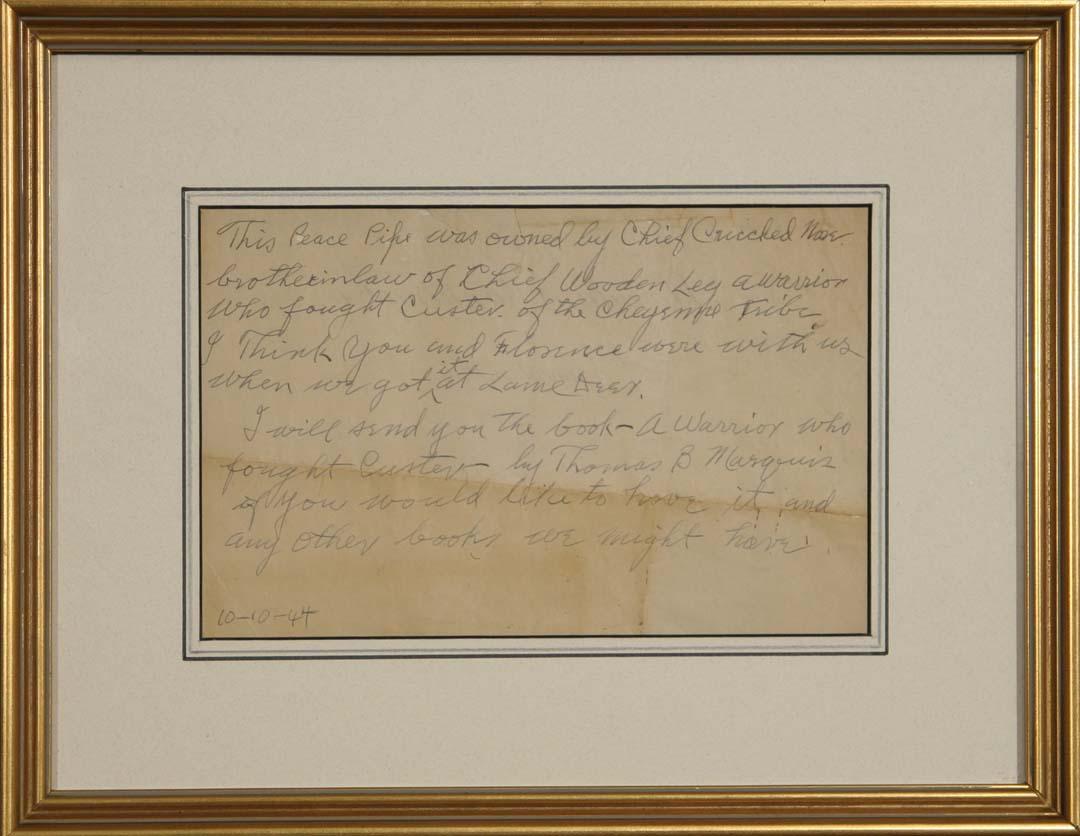 This Peace Pipe was owned by Chief Criccked Nose
brotherinlaw of Chief Wooden Leg a warrior
who fought Custer. of the Cheyenne Tribe
I Think You and Florence were with us
when we got it at Lame Deer.
I will send you the book - A Warrior who
fought Custer - by Thomas B Marquis
if you would like to have it and
any other books we might have.
10-10-44